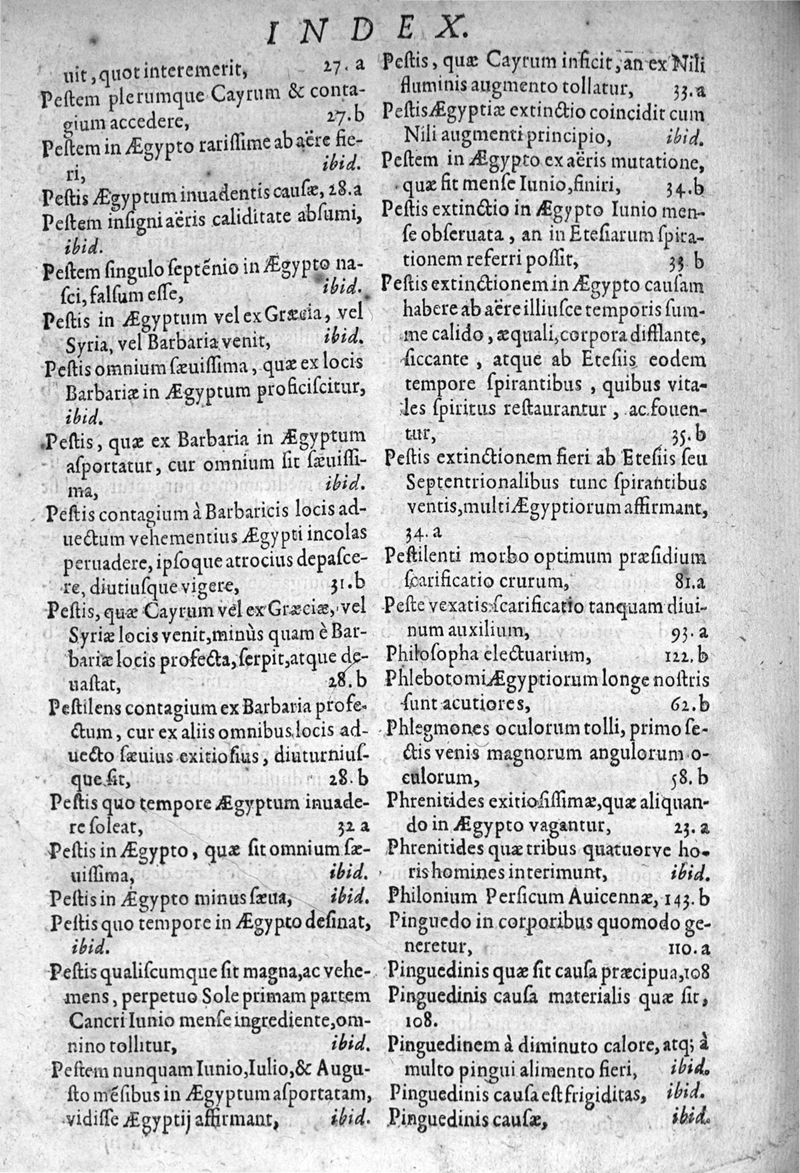 INDEX.
uit, quot interemerit, 27. a
Peſtem plerumque Cayrum & conta-
gium accedere, 27.b
Peſtem in Ægypto rariſſime ab aëre fie-
ri, ibid.
Peſtis Ægyptum inuadentis cauſæ, 28.a
Peſtem inſigni aëris caliditate abſumi,
ibid.
Peſtem ſingulo ſepténio in Ægypto na-
ſci, falſum eſſe, ibid.
Peſtis in Ægyptum vel ex Græcia, vel
Syria, vel Barbaria venit, ibid.
Peſtis omnium ſæuiſſima, quæ ex locis
Barbariæ in Ægyptum proficiſcitur,
ibid.
Peſtis, quæ ex Barbaria in Ægyptum
aſportatur, cur omnium ſit ſæuiſſi-
ma, ibid.
Peſtis contagium à Barbaricis locis ad-
uectum vehementius Ægypti incolas
peruadere, ipſoque atrocius depaſce-
re, diutiuſque vigere, 31.b
Peſtis, quæ Cayrum vel ex Græciæ, vel
Syriæ locis venit, minùs quam è Bar-
bariæ locis profecta, ſerpit, atque de-
uaſtat, 28.b
Peſtilens contagium ex Barbaria profe-
ctum, cur ex aliis omnibus locis ad-
uecto ſæuius exitioſius, diuturniuſ-
que ſit, 28.b
Peſtis quo tempore Ægyptum inuade-
re ſoleat, 32 a
Peſtis in Ægypto, quæ ſit omnium ſæ-
uiſſima, ibid.
Peſtis in Ægypto minus ſæua, ibid.
Peſtis quo tempore in Ægypto deſinat,
ibid.
Peſtis qualiſcumque ſit magna, ac vehe-
mens, perpetuo Sole primam partem
Cancri Iunio menſe ingrediente, om-
nino tollitur, ibid.
Peſtem nunquam Iunio, Iulio, & Augu-
ſto méſibus in Ægyptum aſportatam,
vidiſſe Ægyptij affirmant, ibid.
Peſtis, quæ Cayrum inficit, an ex Nili
fluminis augmento tollatur, 33.a
Peſtis Ægyptiæ extinctio coincidit cum
Nili augmenti principio, ibid.
Peſtem in Ægypto ex aëris mutatione,
quæ fit menſe Iunio, finiri, 34.b
Peſtis extinctio in Ægypto Iunio men-
ſe obſeruata, an in Eteſiarum ſpira-
tionem referri poſſit, 33 b
Peſtis extinctionem in Ægypto cauſam
habere ab aëre illiuſce temporis ſum-
me calido, æquali, corpora difflante,
ſiccante, atque ab Eteſiis eodem
tempore ſpirantibus, quibus vita-
les ſpiritus reſtaurantur, ac fouen-
tur, 35.b
Peſtis extinctionem fieri ab Eteſiis ſeu
Septentrionalibus tunc ſpirantibus
ventis, multi Ægyptiorum affirmant,
34.a
Peſtilenti morbo optimum præſidium
ſcarificatio crurum, 81.a
Peſte vexatis ſcarificatio tanquam diui-
num auxilium, 93.a
Philoſopha electuarium, 122.b
Phlebotomi Ægyptiorum longe noſtris
ſunt acutiores, 62.b
Phlegmones oculorum tolli, primo ſe-
ctis venis magnorum angulorum o-
culorum, 58.b
Phrenitides exitioſiſſimæ, quæ aliquan-
do in Ægypto vagantur, 23.a
Phrenitides quæ tribus quatuorve ho-
ris homines interimunt, ibid.
Philonium Perſicum Auicennæ, 143.b
Pinguedo in corporibus quomodo ge-
neretur, 110.a
Pinguedinis quæ ſit cauſa præcipua, 108
Pinguedinis cauſa materialis quæ ſit,
108.
Pinguedinem à diminuto calore, atq; à
multo pingui alimento fieri, ibid.
Pinguedinis cauſa eſt frigiditas, ibid.
Pinguedinis cauſæ, ibid.